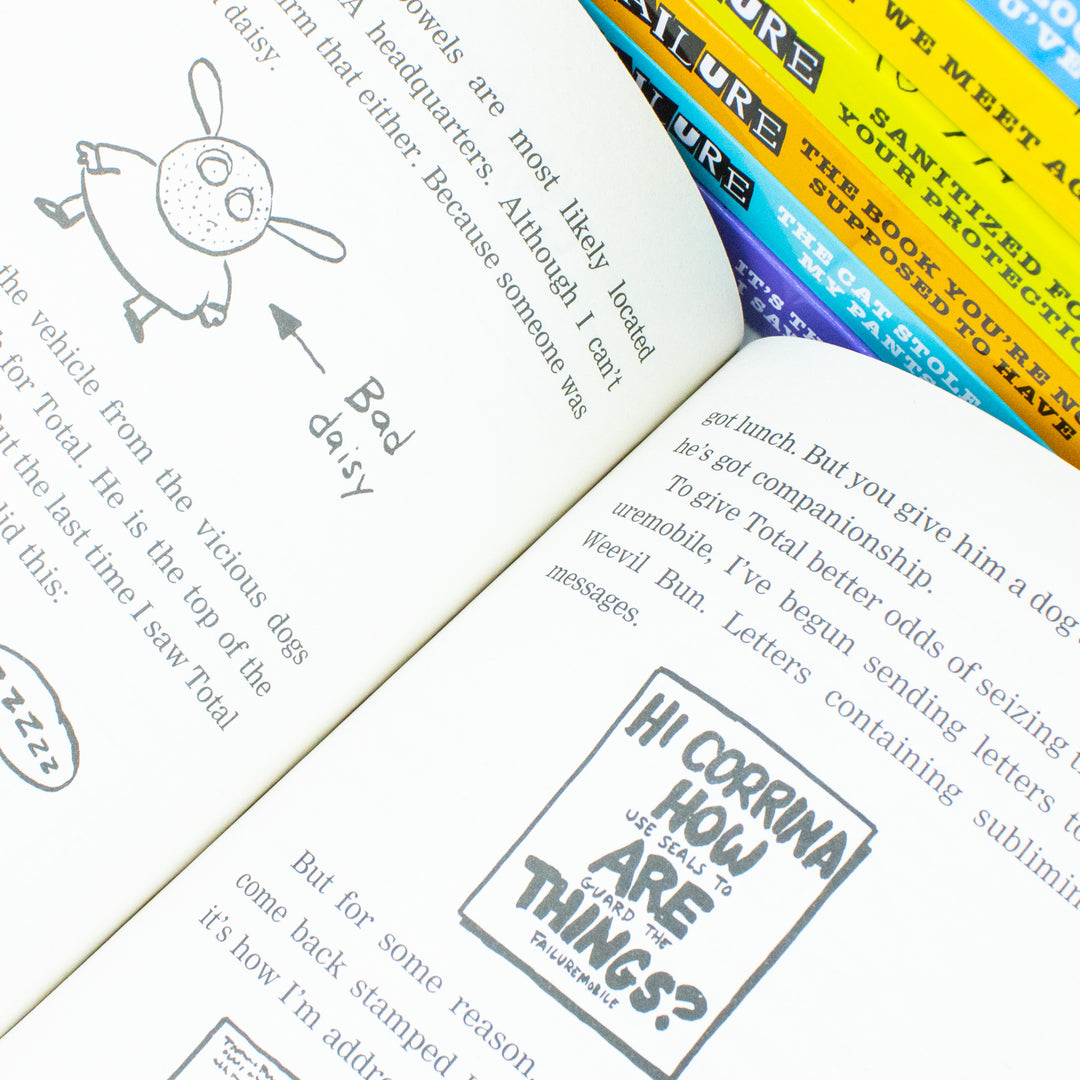 owels are most likely located
A headquarters. Although I can't
irm that either. Because someone was
daisy.
Bad
daisy
the vehicle from the vicious dogs
for Total. He is the top of the
ut the last time I saw Total
did this:
zzzzz
got lunch. But you give him a dog
he's got companionship.
To give Total better odds of seizing
uremobile, I've begun sending letters to
Weevil Bun. Letters containing sublimin
messages.
HI CORRINA
HOW
USE SEALS TO
ARE
GUARD THE
THINGS?
FAILUREMOBILE
But for some reason,
come back stamped
it's how I'm addre
WE MEET AG
URE
SANITIZED FO
YOUR PROTECTIO
AILURE
THE BOOK YOU'RE NO
SUPPOSED TO HAVE
AILURE
THE CAT STOLE
MY PANTS
IT'S TH
I SAY
U'VE